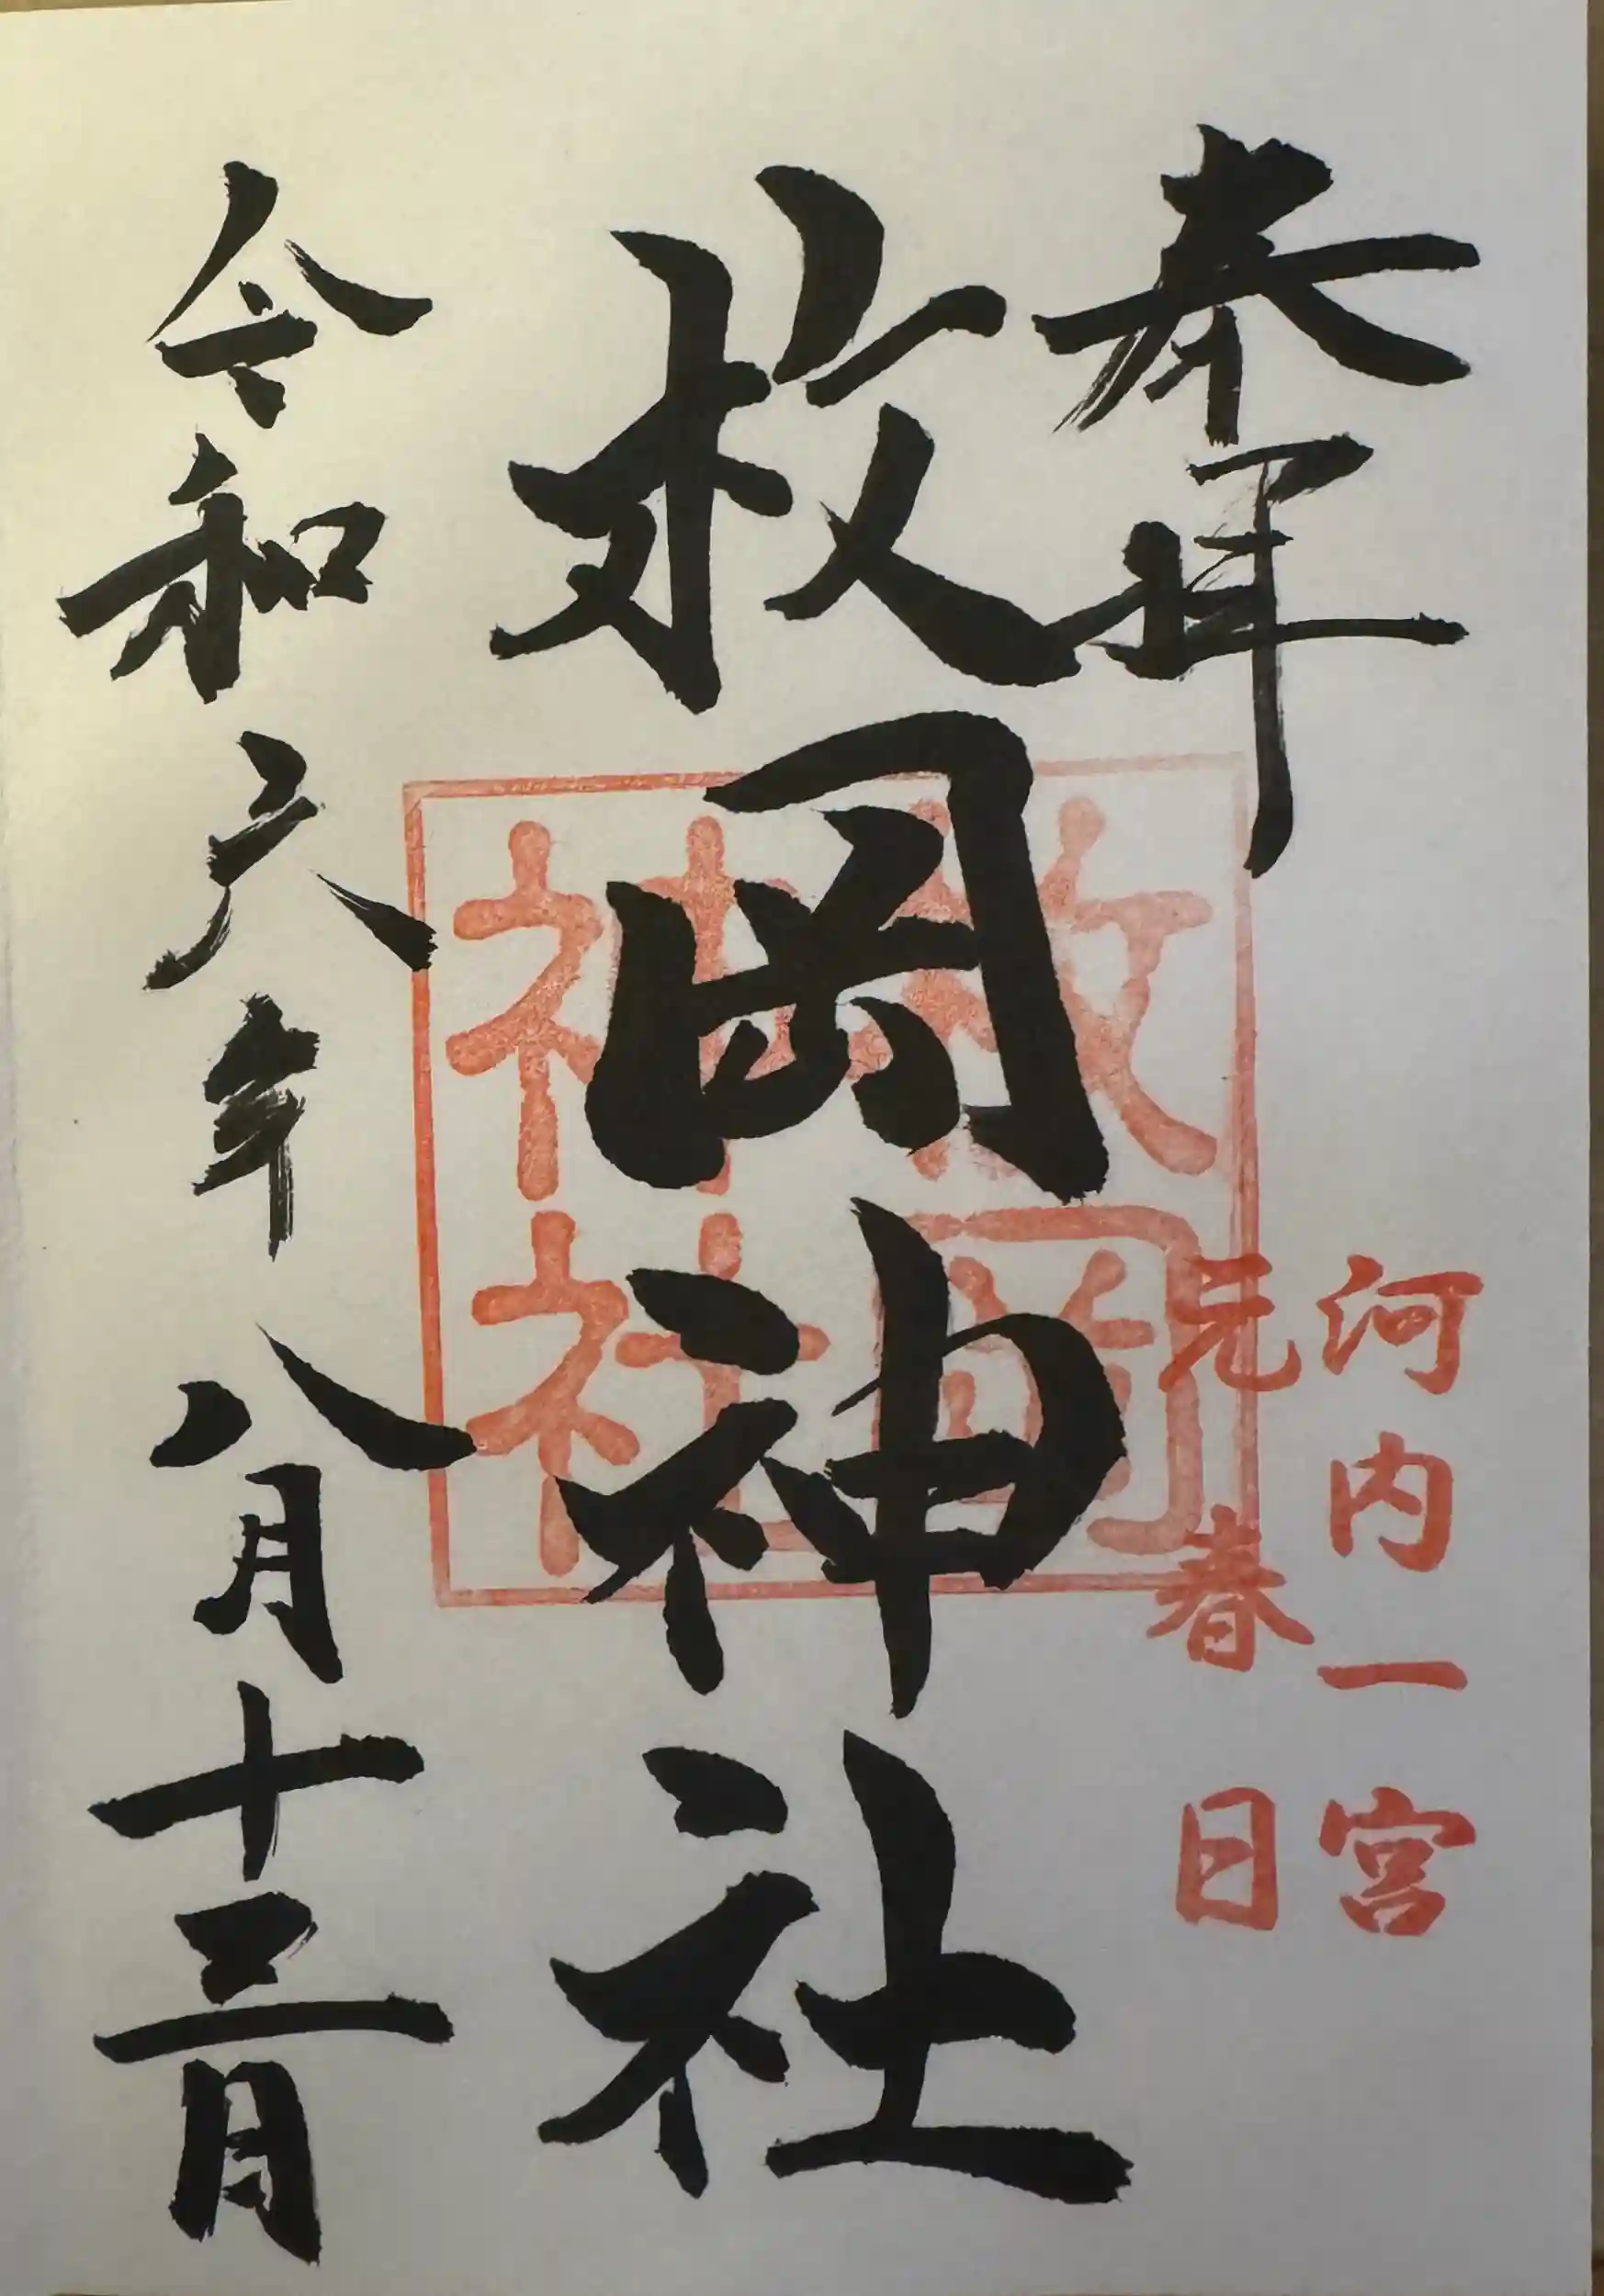 奉拝
河内一宮
元春日
枚岡神社
枚岡
神社
令和六年八月十三日